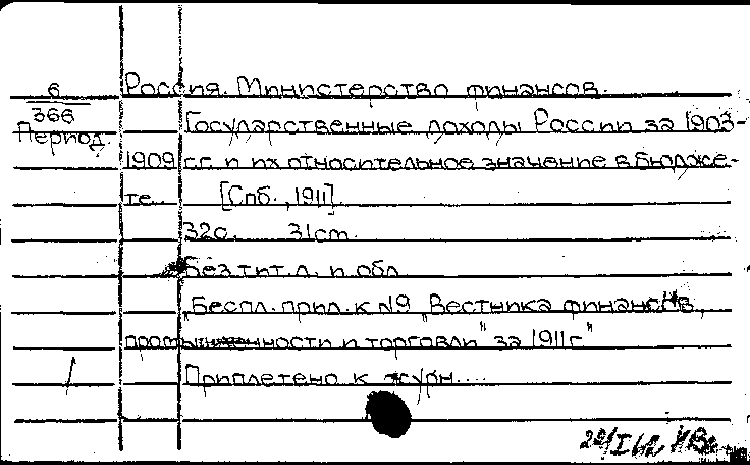 6 Россия. Министерство финансов.
366 Государственные доходы России за 1903-
Период.
1909 г.г. и их относительное значение в бюдже-
те. [Спб., 1911].
32с. 31cm.
Без тит. л. и обл.
"Беспл. прил. к №9 „Вестника финансов,
промышленности и торговли" за 1911г."
Приплетено к журн....